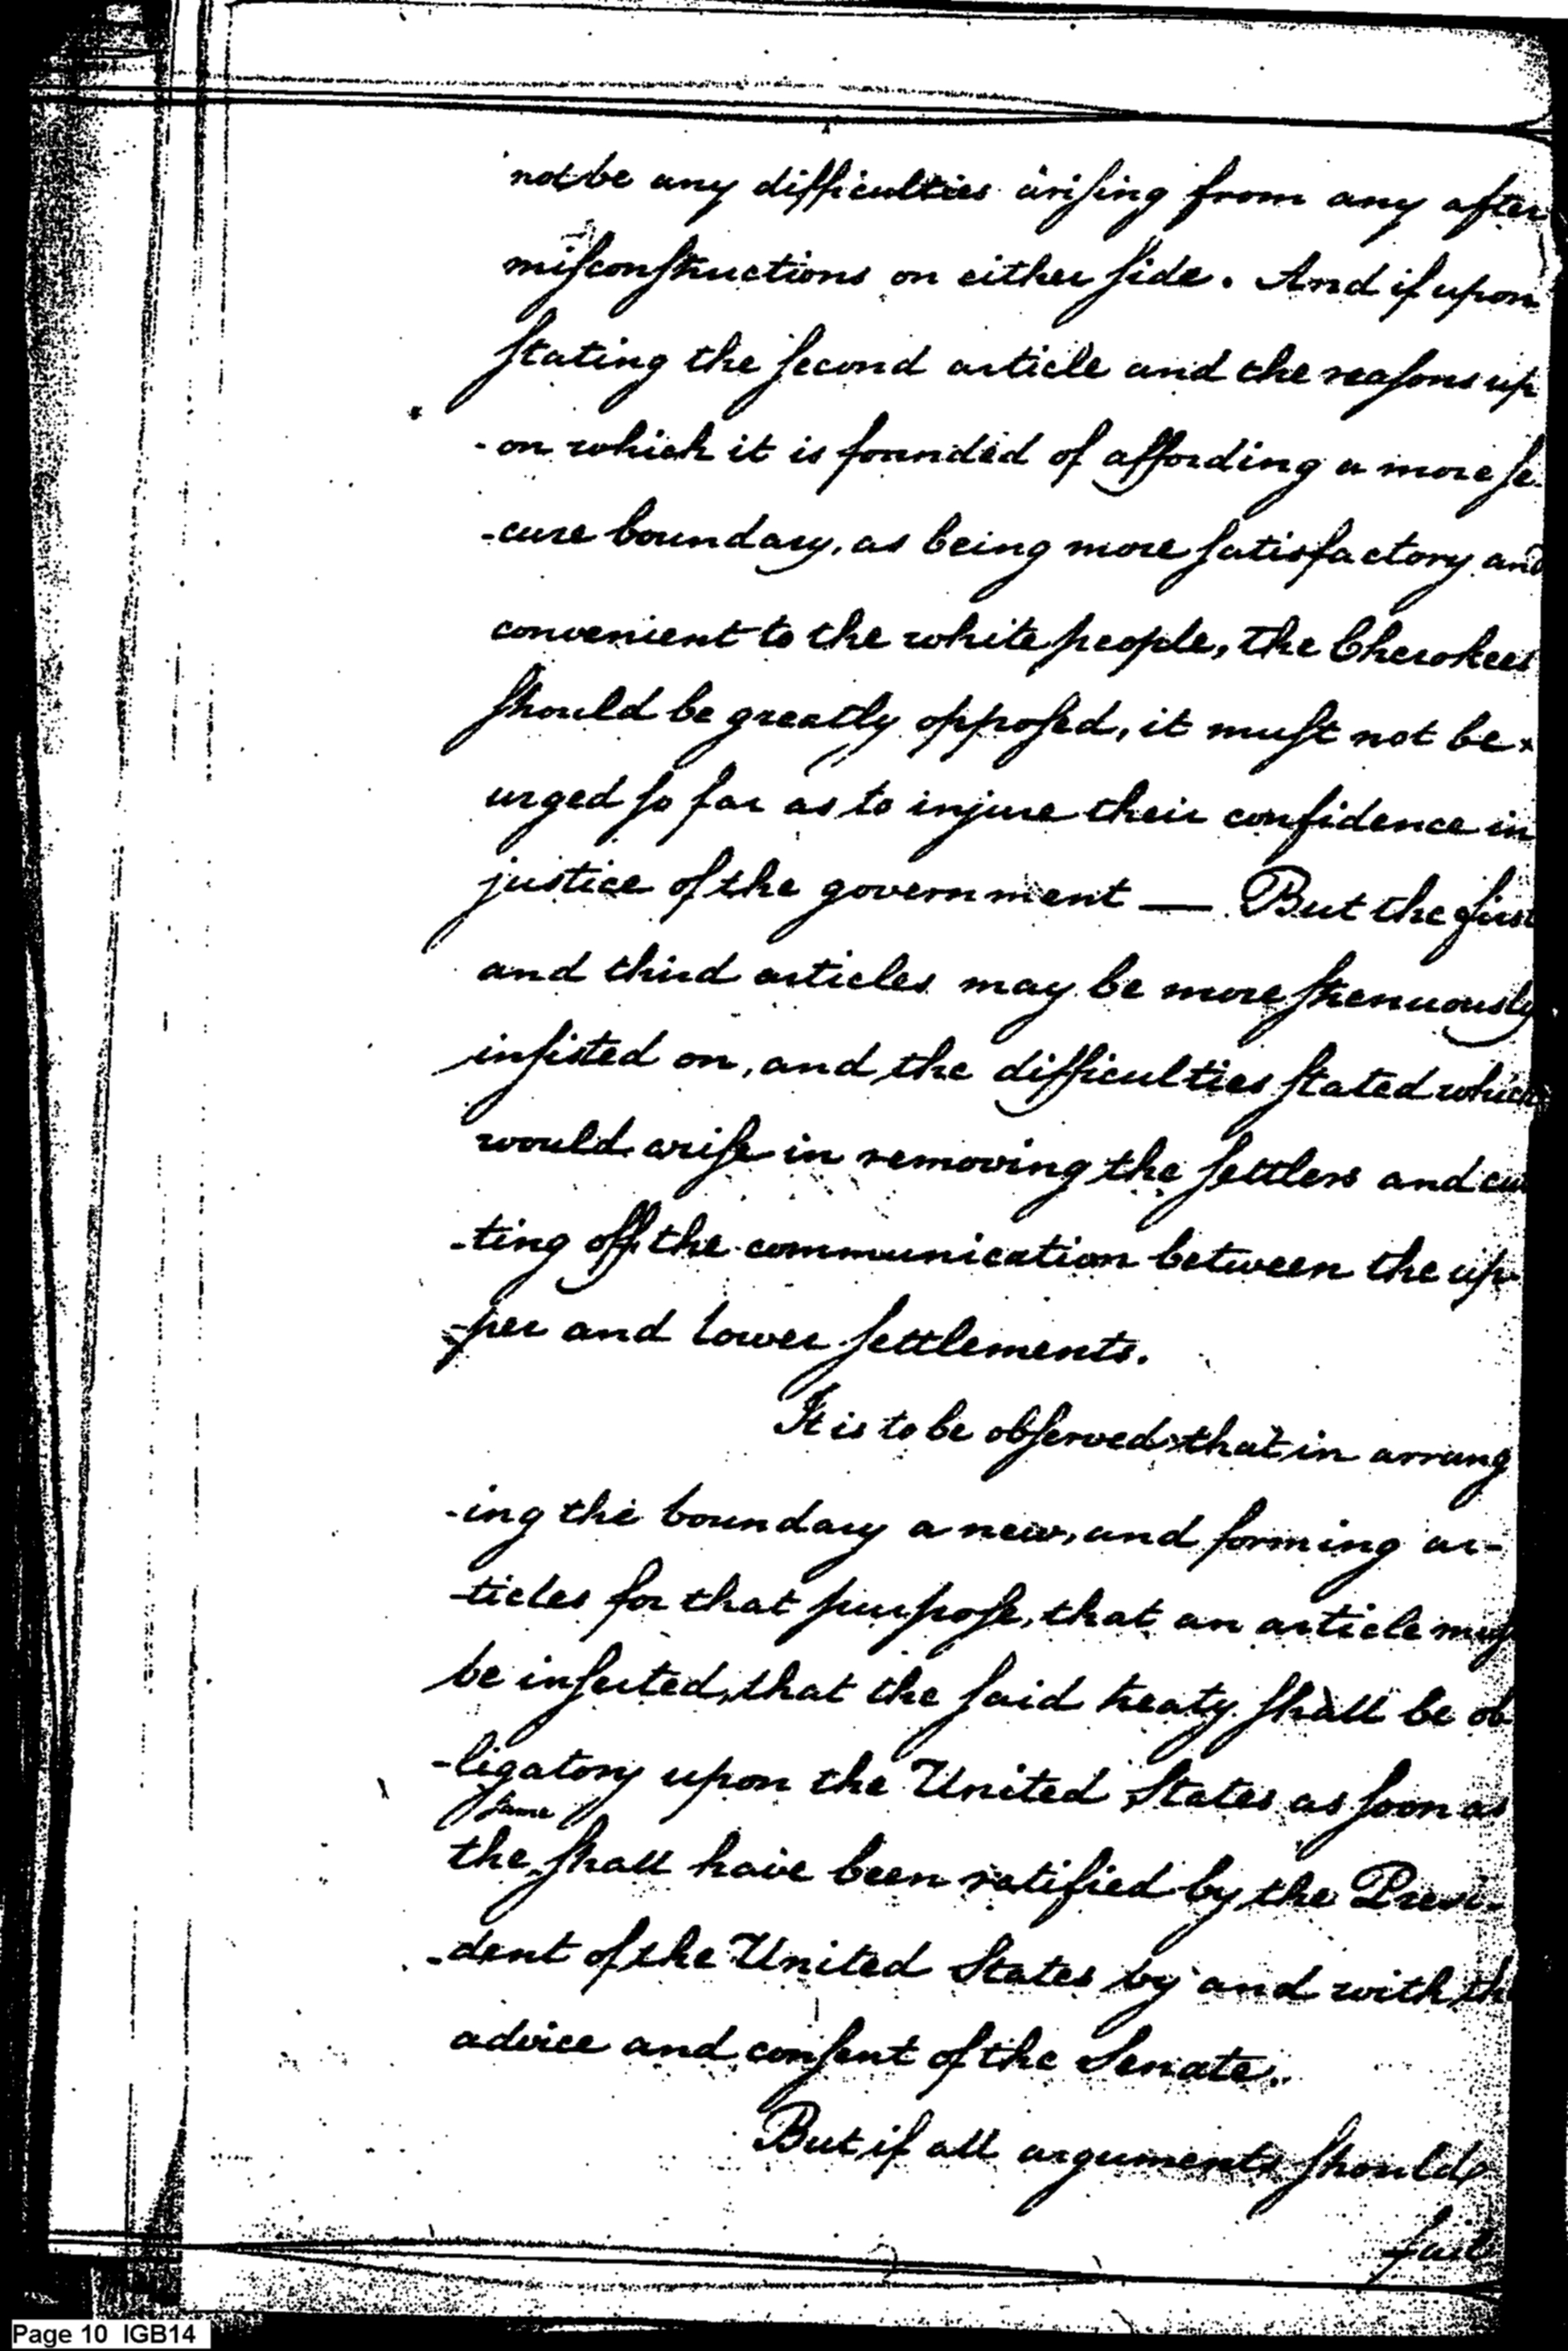 not be any difficulties arising from any after
misconstructions on either side. And if upon
stating the second article and the reasons up
-on which it is founded of affording a more se
-cure boundary, as being more satisfactory and
convenient to the white people, the Cherokees
should be greatly opposed, it must not be
urged so far as to injure their confidence in
justice of the government — But the first
and third articles may be more strenuously
insisted on, and the difficulties stated which
would arise in removing the settlers and cut
-ting off the communication between the up
-per and lower settlements.
It is to be observed that in arrang
-ing the boundary a new, and forming ar-
-ticles for that purpose, that an article must
be inserted, that the said treaty shall be ob
-ligatory upon the United States as soon as
same
the shall have been ratified by the Presi-
-dent of the United States by and with the
advice and consent of the Senate.
But if all arguments should
fail
Page 10 IGB14